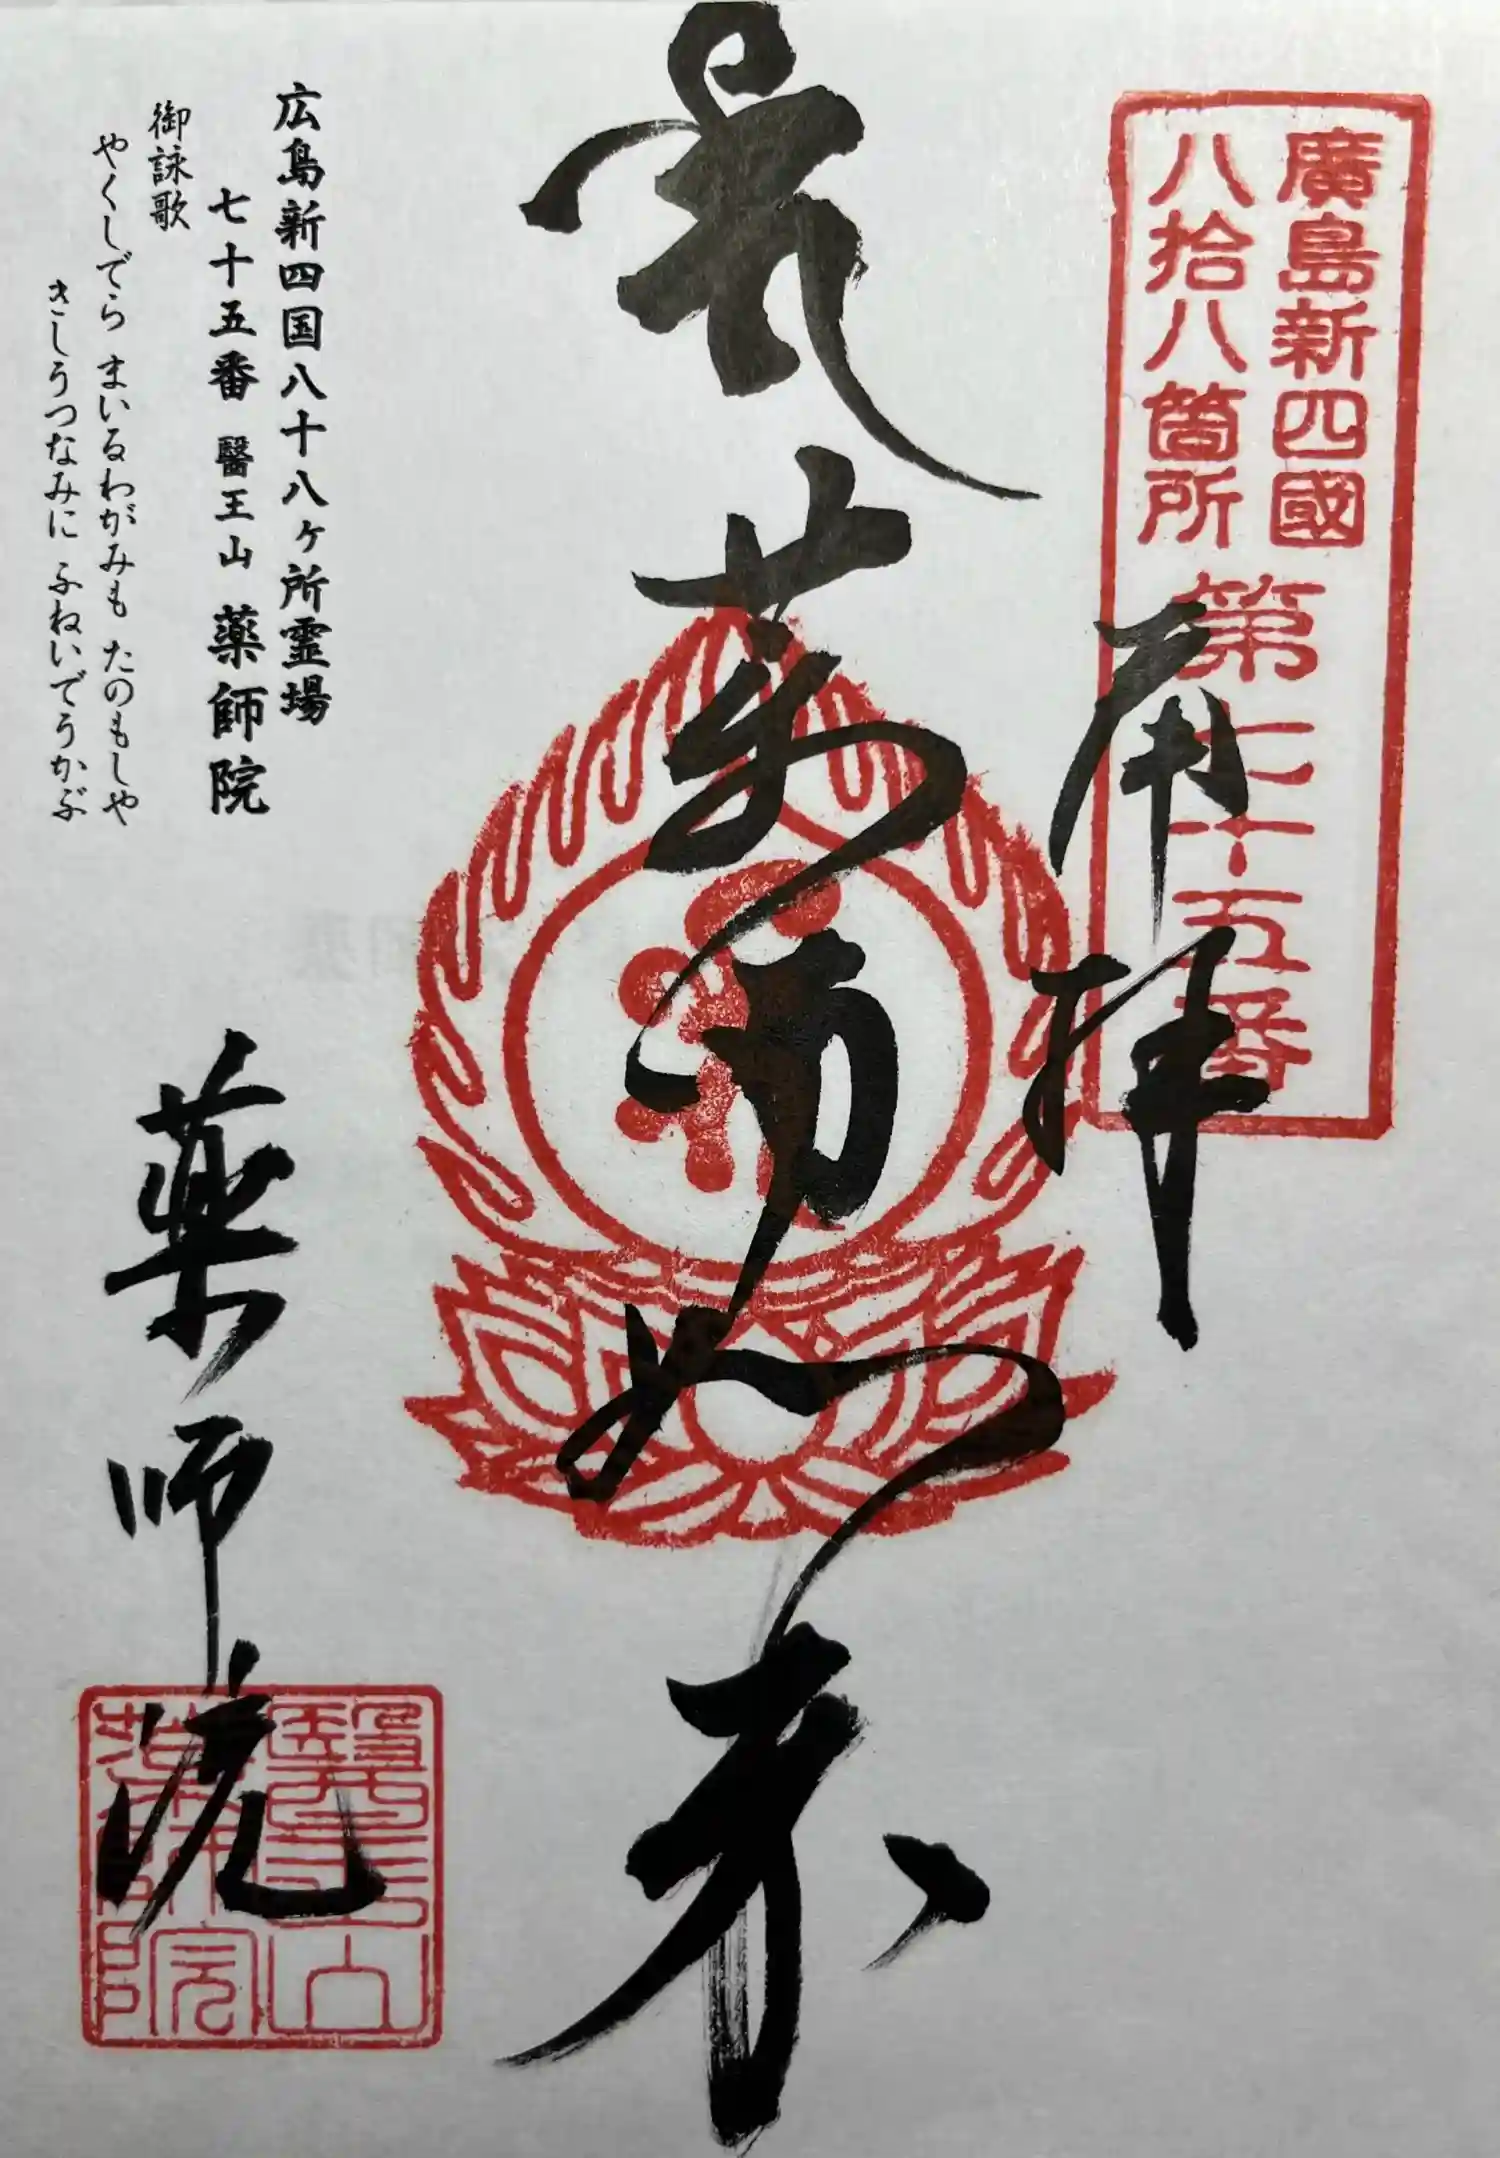 廣島新四國
八拾八箇所
第七十五番
奉拝
薬師如来
広島新四国八十八ヶ所霊場
七十五番 醫王山 薬師院
御詠歌
やくしでら まいるわがみも たのもしや
きしうつなみに ふねいでうかぶ
薬師院
醫王山
薬師院